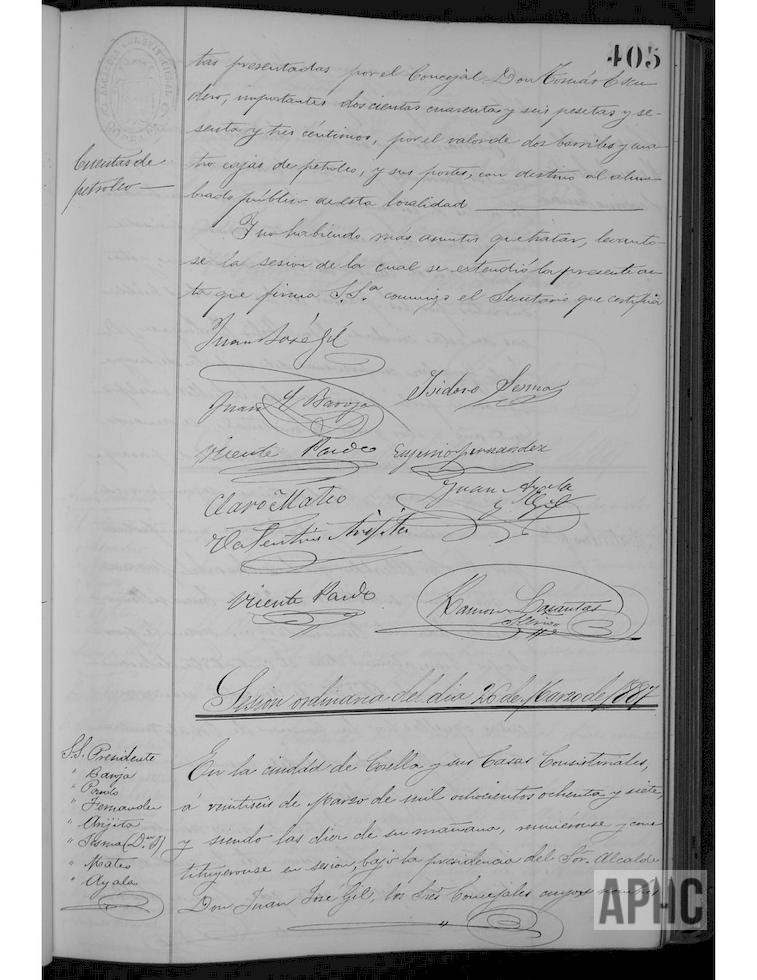 405
tas presentadas por el Concejal Don Tomás Escu-
dero, importantes doscientas cuarenta y seis pesetas y se-
senta y tres céntimos, por el valor de dos barriles y cua-
tro cajas de petroleo, y sus portes, con destino al alum-
brado público de esta localidad
Cuentas de
petroleo
Y no habiendo mas asuntos que tratar, levantó-
se la sesion de la cual se extendió la presente ac-
ta que firma S.Sª conmigo el Secretario que certifico
Juan José Gil
Juan Y Baroja
Isidoro Sesma
Vicente Pardo
Eugenio Fernandez
Claro Mateo
Juan Ayala
y Gil
Valentin Arijita
Vicente Pardo
Ramon
Sesion ordinaria del dia 26 de Marzo de 1887
S.S. Presidente
" Baroja
" Pardo
" Fernandez
" Arijita
" Sesma (Dn I)
" Mateo
" Ayala
En la ciudad de Corella y sus Casas Consistoriales,
á veintiseis de Marzo de mil ochocientos ochenta y siete,
y siendo las diez de su mañana, reuniéronse y cons-
tituyeronse en sesion, bajo la presidencia del Sor. Alcalde
Don Juan José Gil, los Sres Concejales cuyos nombres
APHC